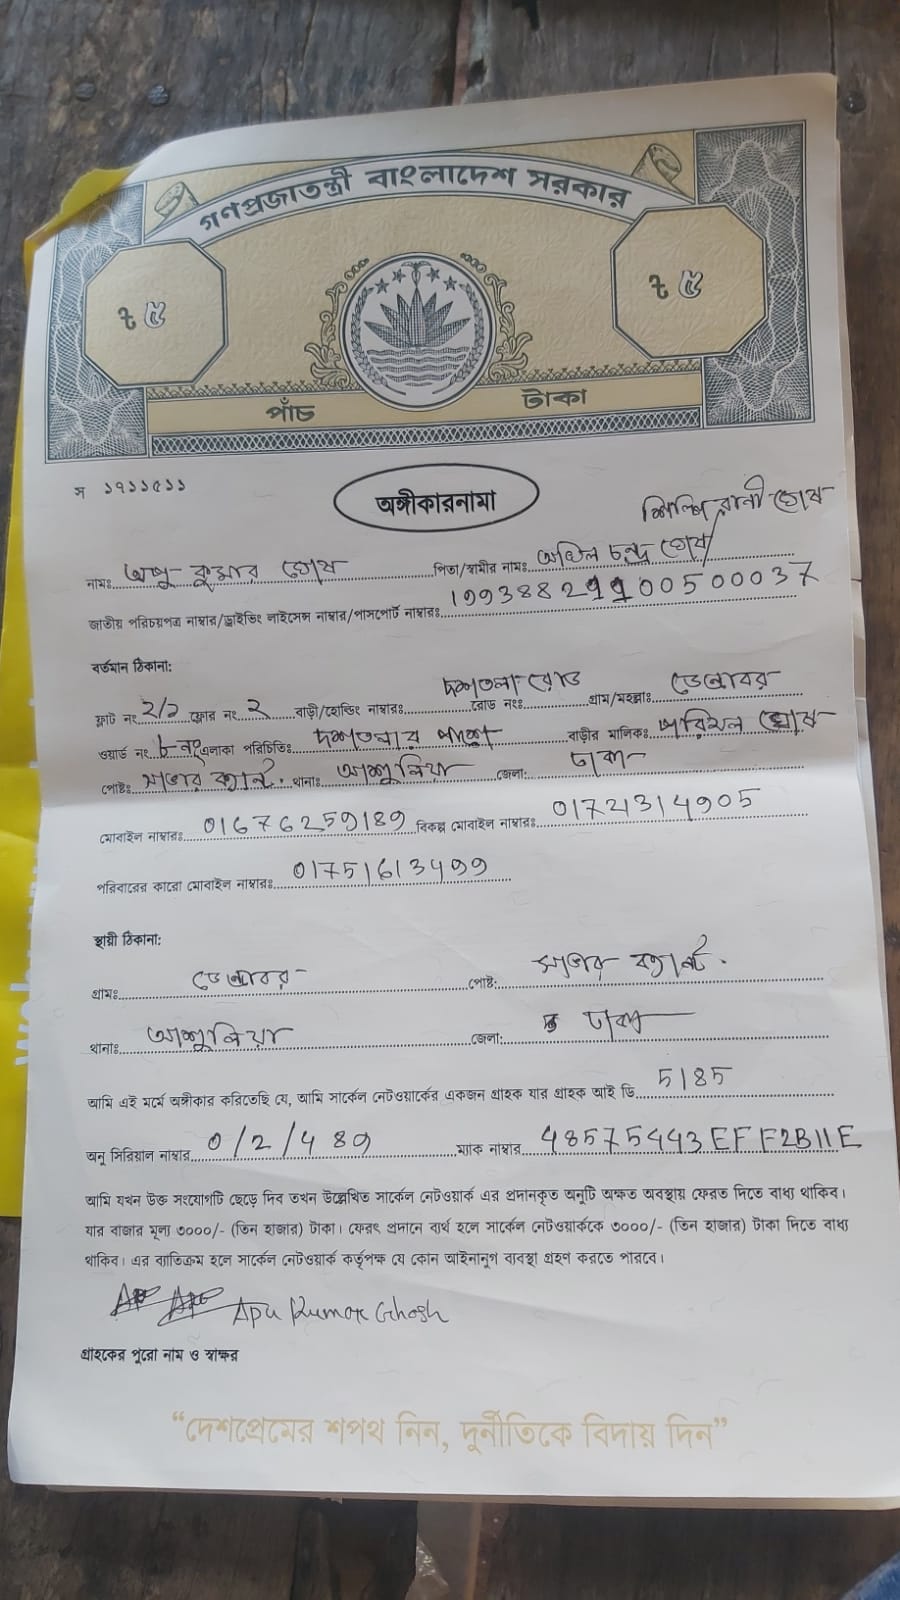 গণপ্রজাতন্ত্রী বাংলাদেশ সরকার
৳ ৫
৳ ৫
পাঁচ টাকা
স ১৭১১৫১১
অঙ্গীকারনামা
শিল্পি রানী ঘোষ
নামঃ অপু কুমার ঘোষ পিতা/স্বামীর নামঃ অখিল চন্দ্র ঘোষ/
জাতীয় পরিচয়পত্র নাম্বার/ড্রাইভিং লাইসেন্স নাম্বার/পাসপোর্ট নাম্বারঃ 19938829100500037
বর্তমান ঠিকানা:
ফ্লাট নং ২/১ ফ্লোর নং ২ বাড়ী/হোল্ডিং নাম্বারঃ দশতলা রোড রোড নংঃ গ্রাম/মহল্লাঃ ডেন্ডাবর
ওয়ার্ড নং ৮ নং এলাকা পরিচিতিঃ দশতলার পাশে বাড়ীর মালিকঃ পরিমল ঘোষ
পোষ্টঃ সাভার ক্যান্ট. থানাঃ আশুলিয়া জেলা: ঢাকা
মোবাইল নাম্বারঃ 01676259189 বিকল্প মোবাইল নাম্বারঃ 01721314905
পরিবারের কারো মোবাইল নাম্বারঃ 01751613499
স্থায়ী ঠিকানা:
গ্রামঃ ডেন্ডাবর পোষ্ট: সাভার ক্যান্ট.
থানাঃ আশুলিয়া জেলা: ঢাকা
আমি এই মর্মে অঙ্গীকার করিতেছি যে, আমি সার্কেল নেটওয়ার্কের একজন গ্রাহক যার গ্রাহক আই ডি 5185
অনু সিরিয়াল নাম্বার 0/2/489 ম্যাক নাম্বার 48575443EFF2B11E
আমি যখন উক্ত সংযোগটি ছেড়ে দিব তখন উল্লেখিত সার্কেল নেটওয়ার্ক এর প্রদানকৃত অনুটি অক্ষত অবস্থায় ফেরত দিতে বাধ্য থাকিব।
যার বাজার মূল্য ৩০০০/- (তিন হাজার) টাকা। ফেরৎ প্রদানে ব্যর্থ হলে সার্কেল নেটওয়ার্ককে ৩০০০/- (তিন হাজার) টাকা দিতে বাধ্য
থাকিব। এর ব্যতিক্রম হলে সার্কেল নেটওয়ার্ক কর্তৃপক্ষ যে কোন আইনানুগ ব্যবস্থা গ্রহণ করতে পারবে।
Apu Kumar Ghosh
গ্রাহকের পুরো নাম ও স্বাক্ষর
“দেশপ্রেমের শপথ নিন, দুর্নীতিকে বিদায় দিন”